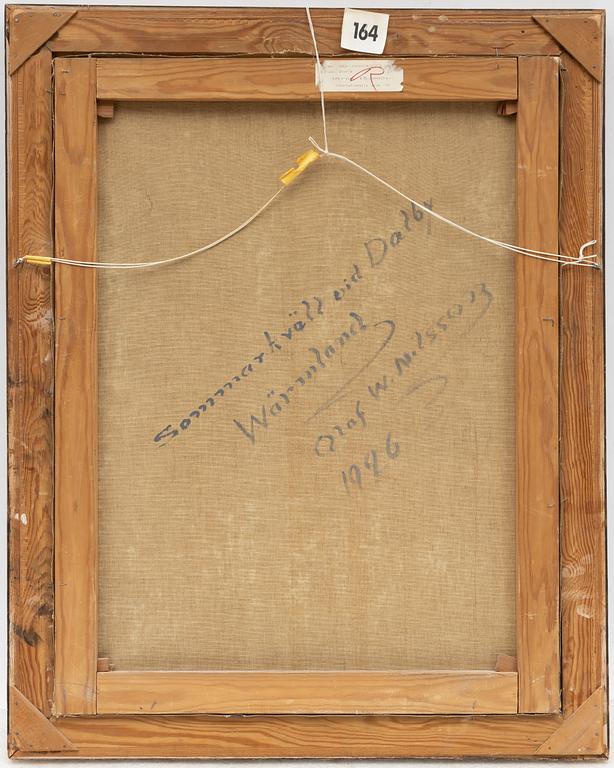 164
R
Sommarkväll vid Dalby
Wärmland
Olof W. Nilsson
1946